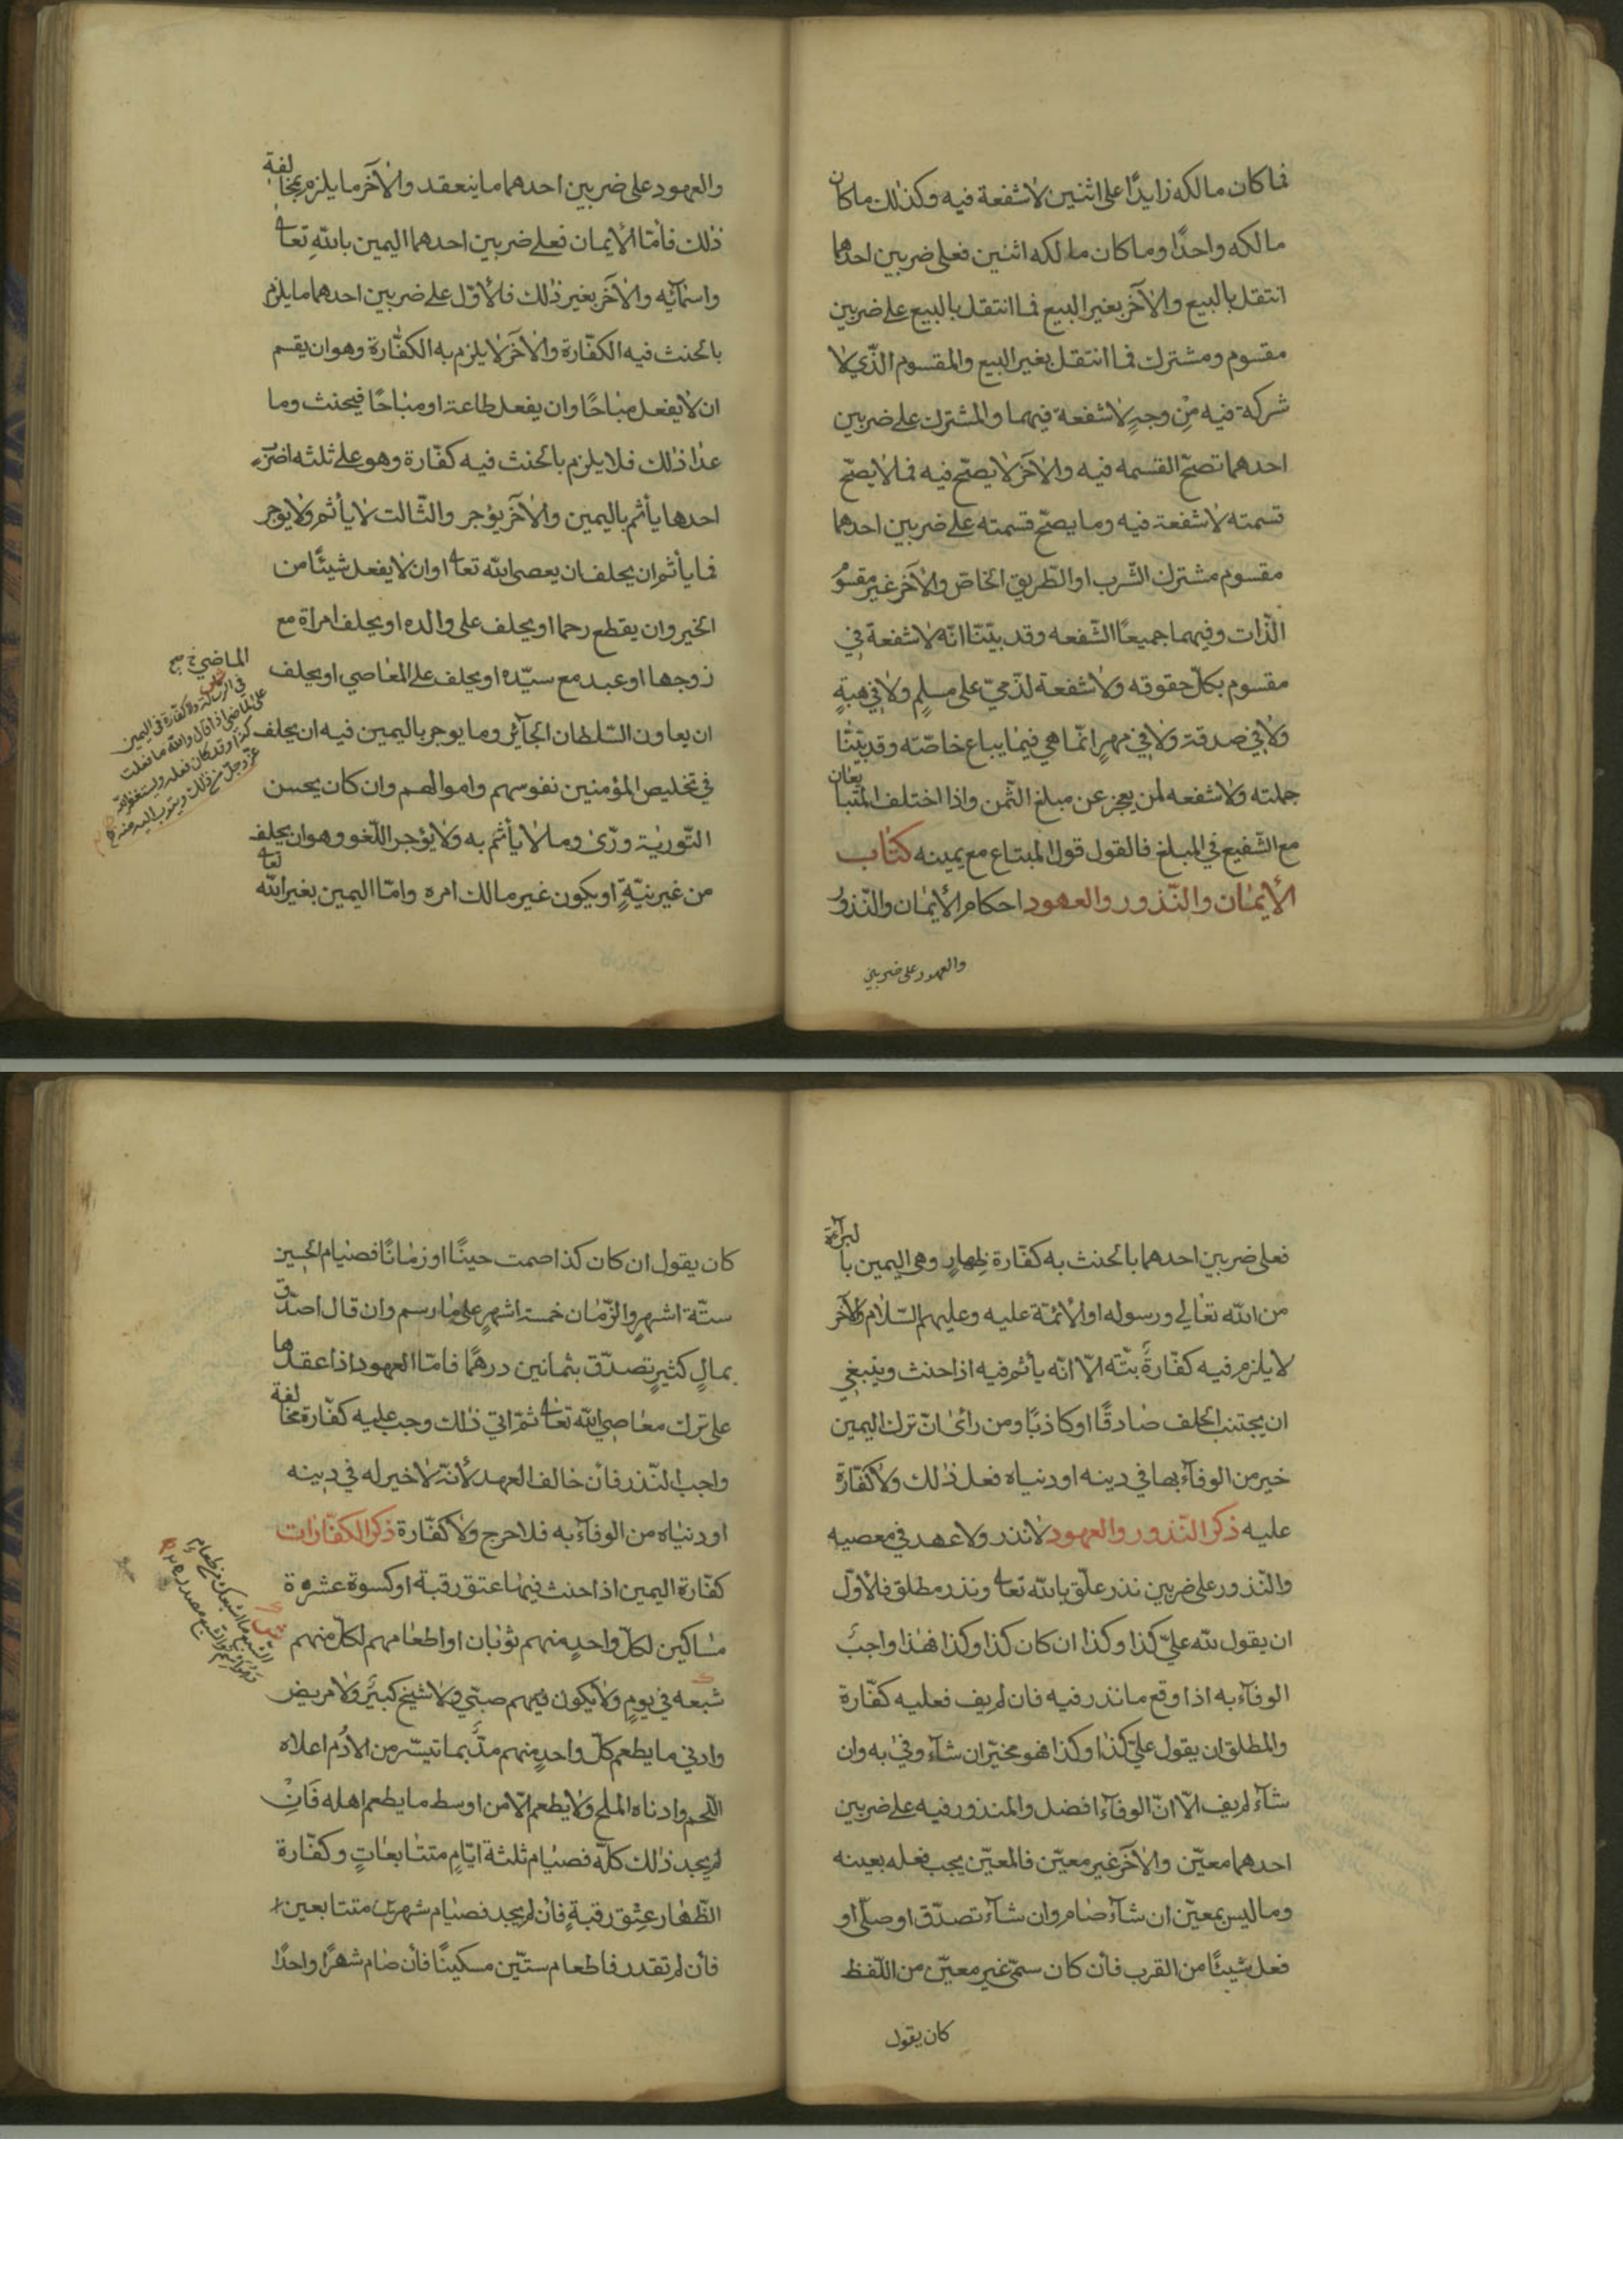 فما كان مالكه زايدًا على اثنين لا شفعة فيه وكذلك ما كان
مالكه واحدًا وما كان مالكه اثنين فعلى ضربين احدهما
انتقل بالبيع والآخر بغير البيع فما انتقل بالبيع على ضربين
مقسوم ومشترك فما انتقل بغير البيع والمقسوم الّذي لا
شركة فيه مِن وجهٍ لا شفعة فيهما والمشترك على ضربين
احدهما تصحّ القسمه فيه والآخر لا يصحّ فيه فما لا يصحّ
قسمته لا شفعة فيه وما يصحّ قسمته على ضربين احدهما
مقسوم مشترك الشّرب او الطّريق الخاصّ والآخر غير مقسوم
الذّات وفيهما جميعًا الشّفعه وقد بيّنّا انّه لا شفعة في
مقسوم بكلّ حقوقه ولا شفعة لذّميّ على مسلمٍ ولا في هبةٍ
ولا في صدقة ولا في مهرٍ انّما هي فيما يباع خاصّته وقد بيّنّا
جملته ولا شفعه لمن يعجز عن مبلغ الثّمن واذا اختلف المتبايعان
مع الشّفيع في المبلغ فالقول قول المبتاع مع يمينه كتاب
الأيمان والنّذور والعهود احكام الأيمان والنّذور
والعهود على ضربين
والعهود على ضربين احدهما ما ينعقد والآخر ما يلزم بمخالفة
ذلك فأمّا الأيمان فعلى ضربين احدهما اليمين باللّهِ تعالى
واسمآئِه والآخر بغير ذلك فالأوّل على ضربين احدهما ما يلزم
بالحنث فيه الكفّارة والآخر لا يلزم به الكفّارة وهو ان يقسم
ان لا يفعل مباحًا وان يفعل طاعة او مباحًا فيحنث وما
عدا ذلك فلا يلزم بالحنث فيه كفّارة وهو على ثلثه اضرب
احدها يأثم باليمين والآخر يؤجر والثّالث لا يأثم ولا يوجر
فما يأثم ان يحلف ان يعصى اللّه تعالى او ان لا يفعل شيئًا من
الخير وان يقطع رحما او يحلف على والده او يحلف امراة مع
زوجها او عبد مع سيّده او يحلف على المعاصي او يحلف
ان يعاون السّلطان الجآئر وما يوجر باليمين فيه ان يحلف
في تخليص المؤمنين نفوسهم واموالهم وان كان يحسن
التّورية ورّى وما لا يأثم به ولا يؤجر اللّغو وهو ان يحلف
من غير نيّةٍ او يكون غير مالك امره وامّا اليمين بغير اللّه تعالى
الماضي خ صح
في الرسالة ولا كفّارة في اليمين
على الماضي اذا قال واللّه ما فعلت
كذا وقد كان فعله ويستغفر اللّه
عزّ وجلّ من ذلك ويتوب اليه منه
فعلى ضربين احدهما بالحنث به كفّارة ظِهارٍ وهي اليمين بالبرآءة
من اللّه تعالى ورسوله او الأئمّة عليه وعليهم السّلام والآخر
لا يلزم فيه كفّارةً بتّة الّا انّه يأثم فيه اذا حنث وينبغي
ان يجتنب الحلف صادقًا او كاذبًا ومن رأى انّ ترك اليمين
خير من الوفآء بها في دينه او دنياه فعل ذلك ولا كفّارة
عليه ذكر النّذور والعهود لا نذر ولا عهد في معصيه
والنّذور على ضربين نذر علّق باللّه تعالى ونذر مطلق فالأوّل
ان يقول للّه عليّ كذا وكذا ان كان كذا وكذا فهذا واجب
الوفآء به اذا وقع ما نذر فيه فان لم يف فعليه كفّارة
والمطلق ان يقول عليّ كذا وكذا فهو مخيّر ان شآء وفى به وان
شآء لم يف الّا انّ الوفآء افضل والمنذور فيه على ضربين
احدهما معيّن والآخر غير معيّن فالمعيّن يجب فعله بعينه
وما ليس بمعيّن ان شآء صام وان شآء تصدّق او صلّى او
فعل شيئًا من القرب فأن كان سمّى غير معيّن من اللّفظ
كان يقول
كان يقول ان كان كذا صمت حينًا او زمانًا فصيام الحين
ستّة اشهرٍ والزّمان خمسة اشهرٍ على ما رسم وان قال اصدّق
بمالٍ كثيرٍ تصدّق بثمانين درهمًا فامّا العهود اذا عقدها
على ترك معاصي اللّه تعالى ثمّ اتى ذلك وجب عليه كفّارة مخالفة
واجب النّذر فأن خالف العهد لأنّه لا خير له في دينه
او دنياه من الوفآء به فلا حرج ولا كفّارة ذكر الكفّارات
كفّارة اليمين اذا حنث فيها عتق رقبة او كسوة عشرة
مساكين لكلّ واحدٍ منهم ثوبان او اطعامهم لكلّ منهم
شبعه في يومٍ ولا يكون فيهم صبّي ولا شيخ كبير ولا مريض
وادنى ما يطعم كلّ واحدٍ منهم مدّ بما تيسّر من الأدُم اعلاه
اللّحم وادناه الملح ولا يطعم الّا من اوسط ما يطعم اهله فَانْ
لم يجد ذلك كلّه فصيام ثلثة ايّامٍ متتابعاتٍ وكفّارة
الظّهار عِتق رقبةٍ فأن لم يجد فصيام شهرين متتابعين
فأن لم تقدر فاطعام ستّين مسكينًا فأن صام شهرًا واحدًا
الشبع ما اشبعك من طعام